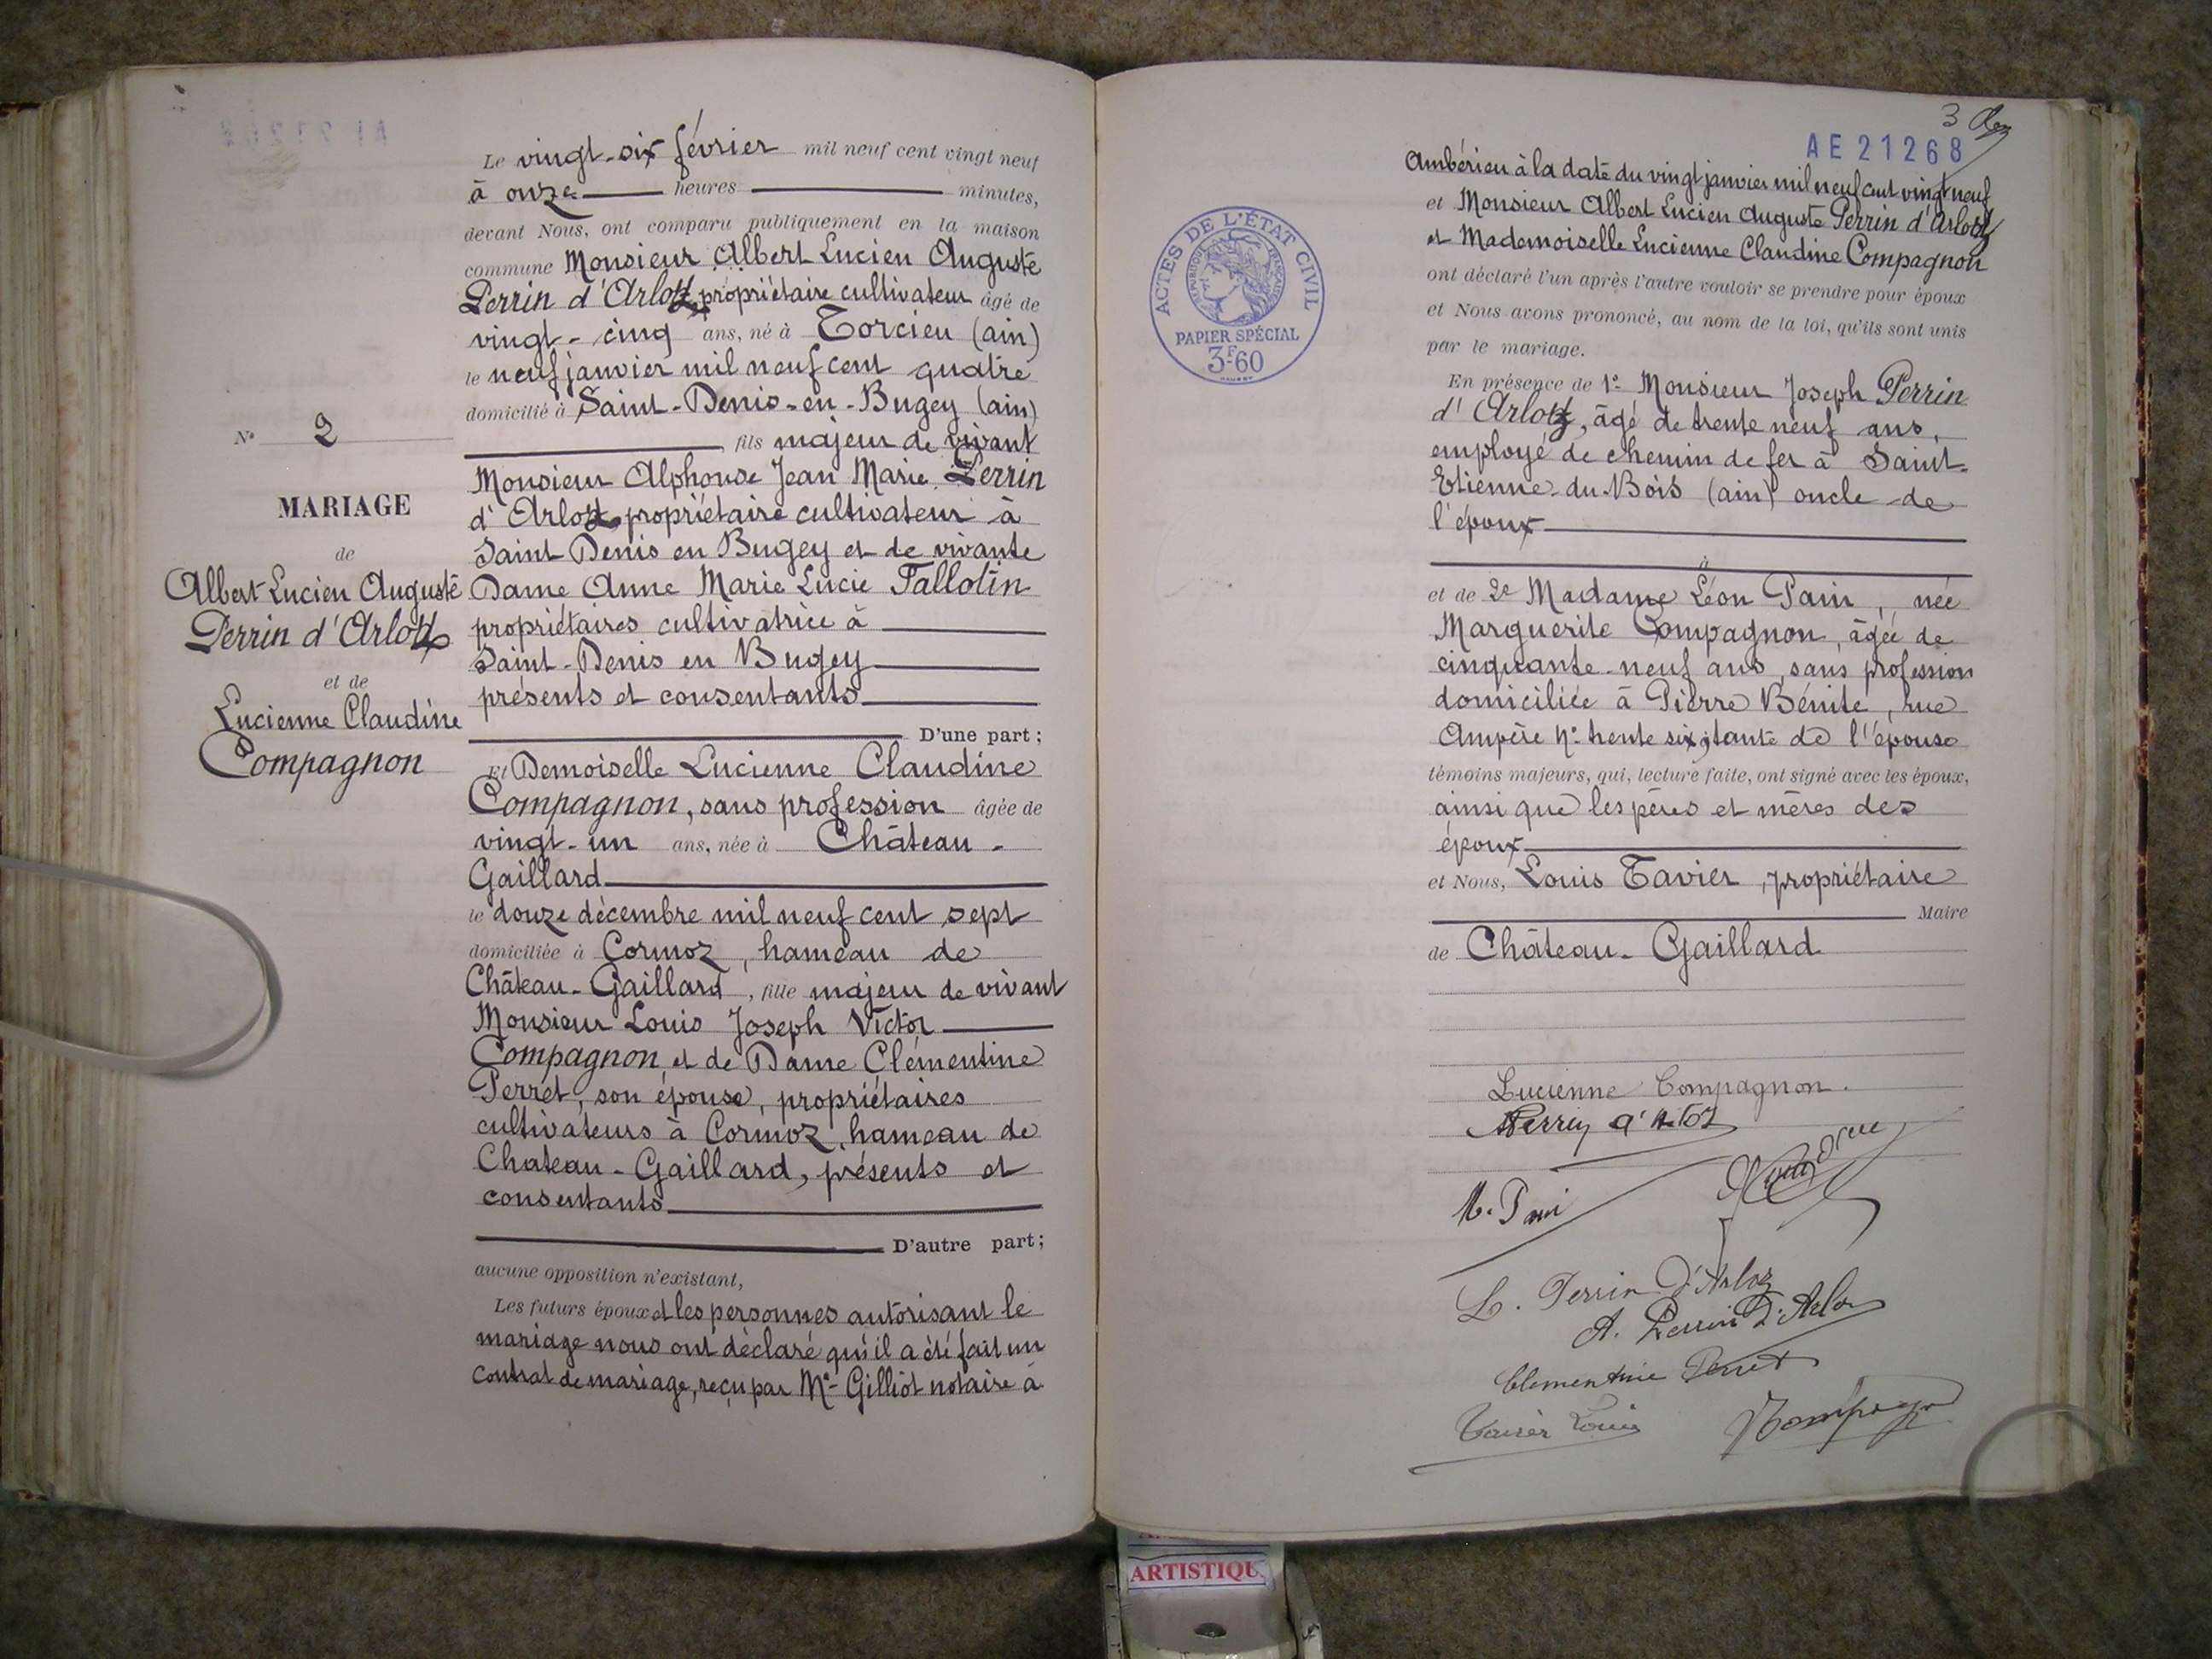 N° 2
MARIAGE
de
Albert Lucien Auguste
Perrin d'Arloz
et de
Lucienne Claudine
Compagnon
Le vingt-six février mil neuf cent vingt neuf
à onze heures minutes,
devant Nous, ont comparu publiquement en la maison
commune Monsieur Albert Lucien Auguste
Perrin d'Arloz, propriétaire cultivateur âgé de
vingt-cinq ans, né à Torcieu (ain)
le neuf janvier mil neuf cent quatre
domicilié à Saint-Denis-en-Bugey (ain)
fils majeur de vivant
Monsieur Alphonse Jean Marie Perrin
d'Arloz propriétaire cultivateur à
Saint Denis en Bugey et de vivante
Dame Anne Marie Lucie Tallotin
propriétaires cultivatrice à
Saint-Denis en Bugey
présents et consentants
D'une part;
Et Demoiselle Lucienne Claudine
Compagnon, sans profession âgée de
vingt-un ans, née à Château-
Gaillard
le douze décembre mil neuf cent sept
domiciliée à Cormoz, hameau de
Château-Gaillard, fille majeur de vivant
Monsieur Louis Joseph Victor
Compagnon et de Dame Clémentine
Perret, son épouse, propriétaires
cultivateurs à Cormoz, hameau de
Chateau-Gaillard, présents et
consentants
D'autre part;
aucune opposition n'existant,
Les futurs époux et les personnes autorisant le
mariage nous ont déclaré qu'il a été fait un
contrat de mariage, reçu par Me Gilliot notaire à
3
AE 21268
ACTES DE L'ÉTAT CIVIL
RÉPUBLIQUE FRANÇAISE
PAPIER SPÉCIAL
3F60
Ambérieu à la date du vingt janvier mil neuf cent vingt neuf
et Monsieur Albert Lucien Auguste Perrin d'Arloz
et Mademoiselle Lucienne Claudine Compagnon
ont déclaré l'un après l'autre vouloir se prendre pour époux
et Nous avons prononcé, au nom de la loi, qu'ils sont unis
par le mariage.
En présence de 1° Monsieur Joseph Perrin
d'Arloz, âgé de trente neuf ans,
employé de chemin de fer à Saint-
Etienne-du-Bois (ain) oncle de
l'époux
et de 2e Madame Léon Pain, née
Marguerite Compagnon, âgée de
cinquante-neuf ans, sans profession
domiciliée à Pierre Bénite, rue
Ampère N° trente six, tante de l'épouse
témoins majeurs, qui, lecture faite, ont signé avec les époux,
ainsi que les pères et mères des
époux
et Nous, Louis Tavier, propriétaire
Maire
de Château-Gaillard
Lucienne Compagnon.
Perrin d'Arloz
M. Pain
L. Perrin D'Arloz
A. Perrin D'Arloz
Clementine Perret
Tavier Louis
Compagnon
ARTISTIQU